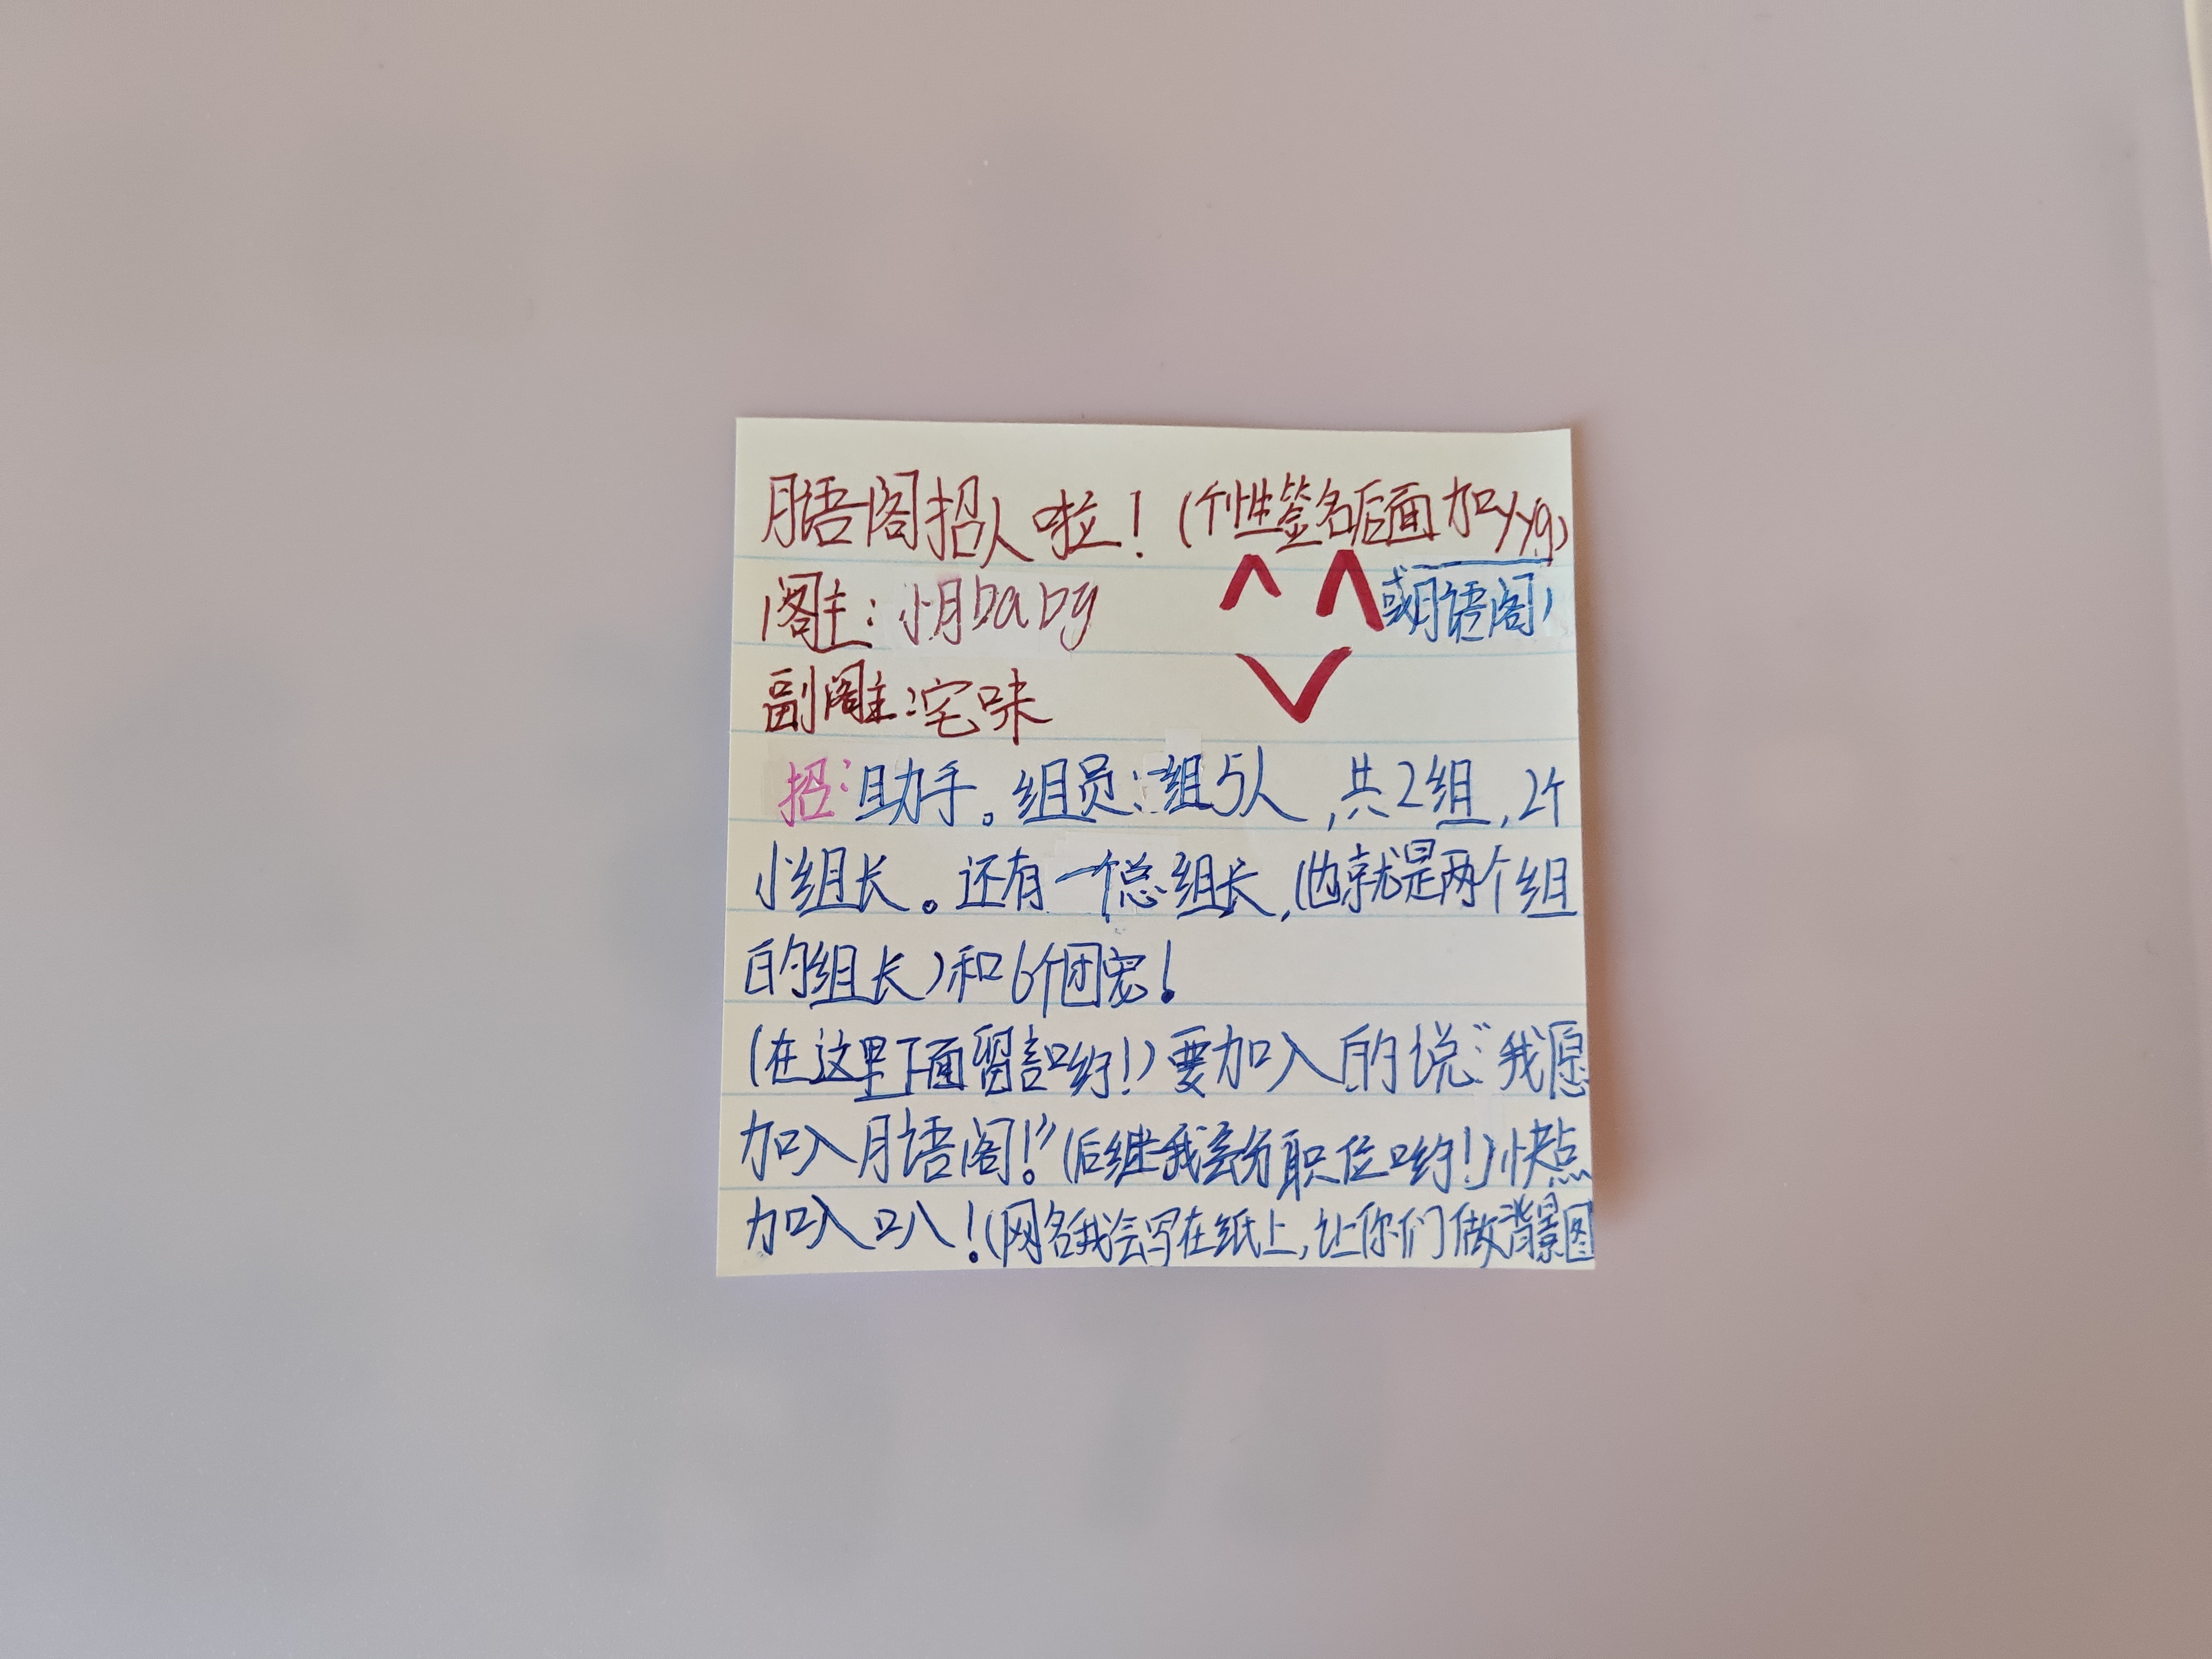 月语阁招人啦！(个性签名后面加yyg)
阁主：小月baby
或月语阁)
副阁主：宅味
招：助手。组员：一组5人，共2组，2个
小组长。还有一个总组长，(也就是两个组
的组长)和6个团宠！
(在这里下面留言哟！)要加入的说："我愿
加入月语阁！"(后继我会分职位哟！)快点
加入叭！(网名我会写在纸上，让你们做背景图